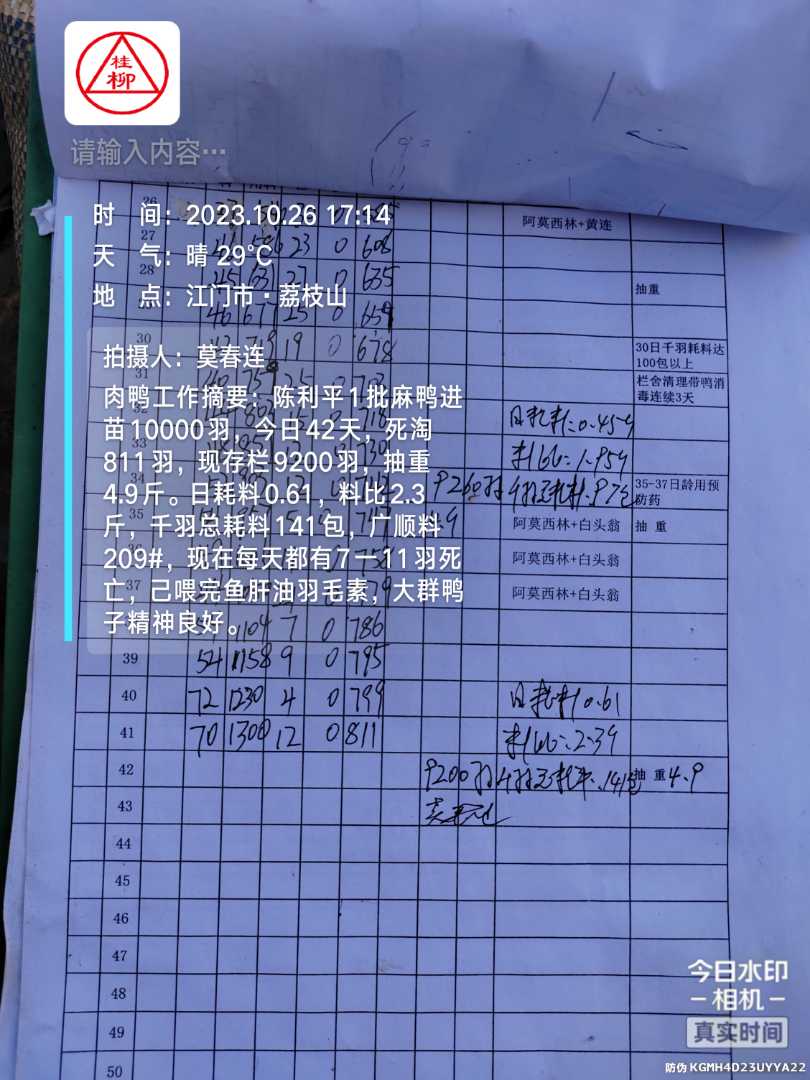 桂
柳
请输入内容…
时 间：2023.10.26 17:14
天 气：晴 29℃
地 点：江门市·荔枝山
拍摄人：莫春连
肉鸭工作摘要：陈利平1批麻鸭进
苗10000羽，今日42天，死淘
811羽，现存栏9200羽，抽重
4.9斤。日耗料0.61，料比2.3
斤，千羽总耗料141包，广顺料
209#，现在每天都有7一11羽死
亡，己喂完鱼肝油羽毛素，大群鸭
子精神良好。
26 阿莫西林+黄连
27 23 0 608
28 27 0 635 抽重
25 0 659
30 19 0 678 30日千羽耗料达
100包以上
31 25 0 703 栏舍清理带鸭消
毒连续3天
32 718 日耗料:0.459
730 料比:1.959
34 9260羽 千羽总耗料:97包 35-37日龄用预
防药
35 阿莫西林+白头翁 抽 重
36 758 阿莫西林+白头翁
37 阿莫西林+白头翁
1104 7 0 786
39 54 1158 9 0 795
40 72 1230 4 0 799 日耗料0.61
41 70 1300 12 0 811 料比:2.39
42 9200羽 千羽总耗料:141包 抽 重4.9
43
44
45
46
47
48
49
50
今日水印
相机
真实时间
防伪 KGMH4D23UYYA22